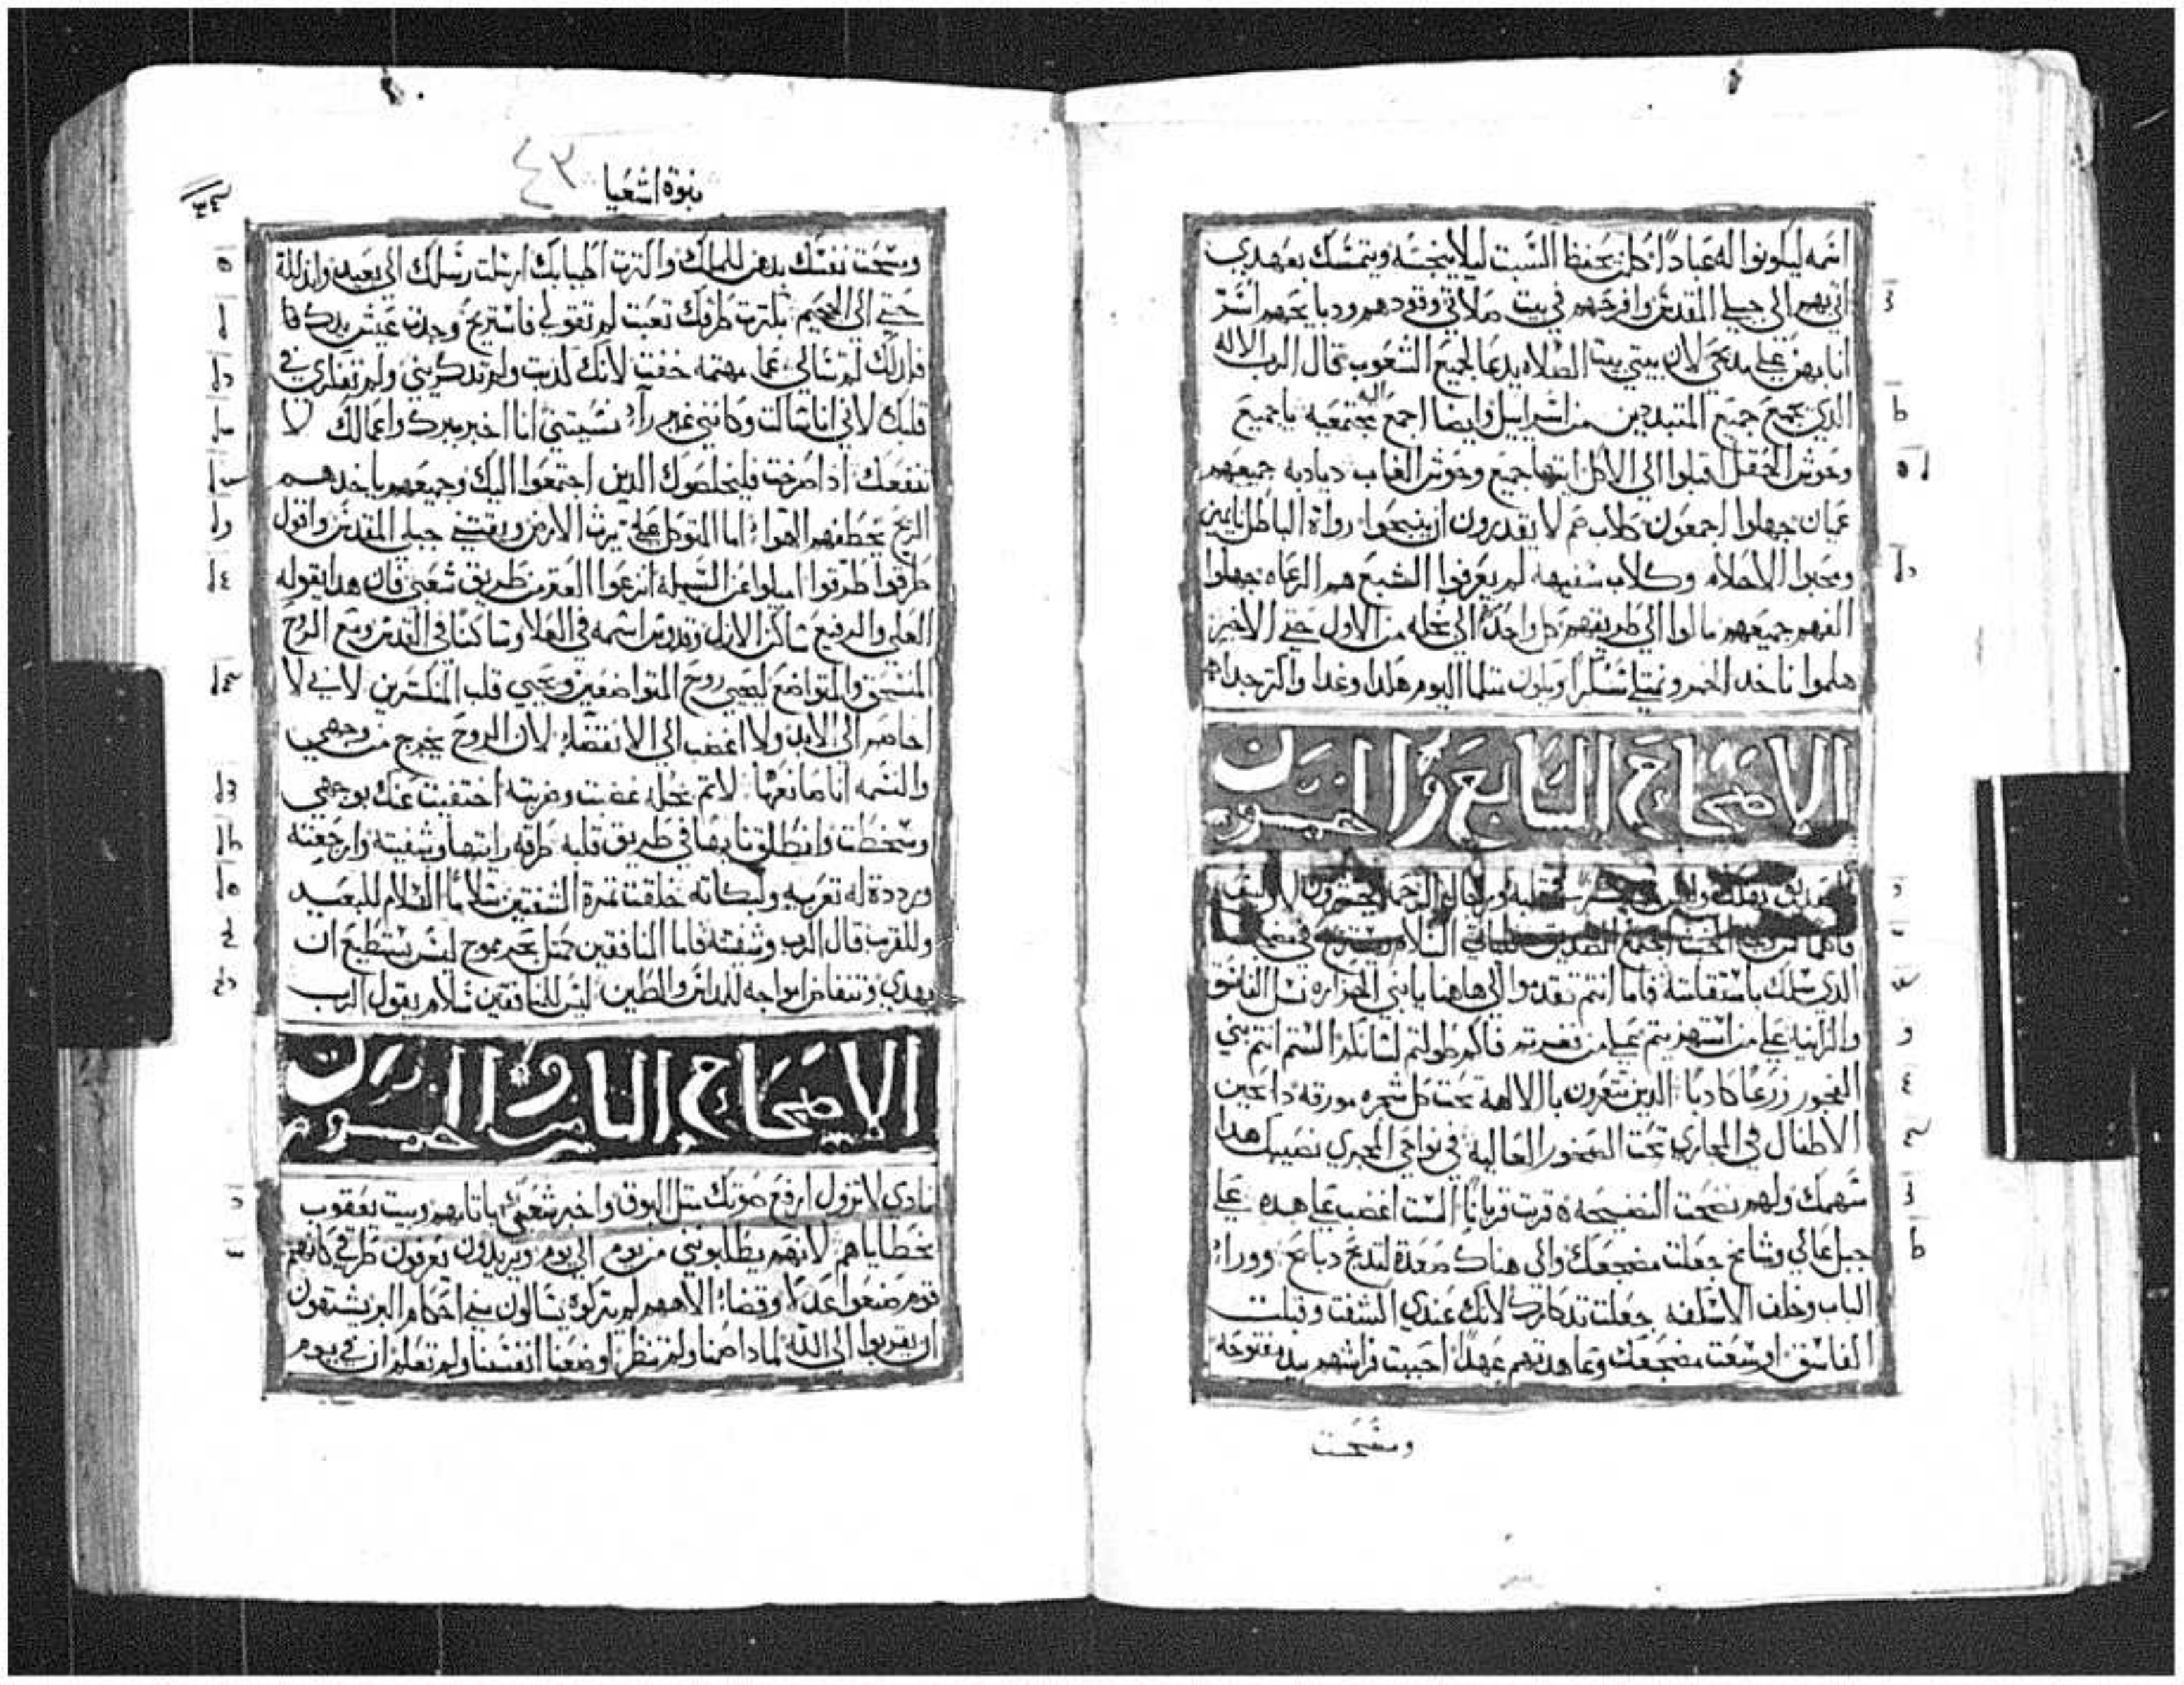 اسمه ليكونوا له عبادا كلمن يحفظ السبت ليلا ينجسه ويتمسك بعهدي
اتي بهم الي جبلي المقدس وافرحهم في بيت صلاتي وقودهم ودبايحهم اسر
انا بهن علي مدبحي لان بيتي بيت الصلاه يدعا لجميع الشعوب قال الرب الاله
الذي يجمع جميع المتبددين من اسراييل وايضا اجمع اليه مجتمعيه ياجميع
وحوش الحقل اقبلوا الي الاكل ايتها جميع وحوش الغاب ديادبه جميعهم
عميان جهلوا اجمعون كلاب عم لا يقدرون ان ينبحوا رواة الباطل نايمين
ومحبوا الاحلام وكلاب سفيهه لم يعرفوا الشبع هم الرعاه جهلوا
الفهم جميعهم مالوا الي طريقهم كل واحد الي بخله من الاول حتي الاخير
هلموا ناخد الخمر ونمتلي سكرا ويكون مثلما اليوم هكدا وغدا واكتر جدا
الاصحاح السابع و الخمسون
الصديق يهلك وليس
الذي سلك باستقامته فاما انتم تقدموا الي هاهنا يا بني
والزانيه علي من استهزيتم علي من فغرتم فاكم وطولتم لسانكم الستم انتم بني
الفجور زرعا كادبا الدين تتعزون بالالهة تحت كل شجره مورقة دابحين
الاطفال في المجاري تحت الصخور العاليه في نواحي المجري نصيبك هدا
سهمك ولهم نضحت النضيحه قربت قربانا الست اغضب علي هده علي
جبل عالي وشامخ جعلت مضجعك والي هناك صعدة لتدبح دبايح ووراء
الباب وخلف الاسكفه جعلت تدكارك لانك عندي اكشفت وقبلت
الفاسق اوسعت مضجعك وعاهدتهم عهدا احببت فراشهم بيد مفتوحه
ومسحت
نبوة اشعيا ٤٣
ومسحت نفسك بدهن للملك واكترت اطيابك ارسلت رسلك الي بعيد واتذللة
حتي الي الجحيم بكترت طرقك تعبت لم تقولي فاستريح وجدت عيش يدك
فلدلك لم تسالي عما مهتمه خفت لانك كدبت ولم تدكريني ولم تفكري في
قلبك لاني انا ساكت وكانني غير رآء نسيتني انا اخبر ببرك واعمالك لا
تنفعك ادا صرخت فليخلصوك الدين اجتمعوا اليك وجميعهم ياخدهم
الريح يخطفهم الهوا اما المتوكل علي يرث الارض ويقتني جبلي المقدس واقول
طرقوا طرقوا اميلوا عن السبيل انزعوا العتر من طريق شعبي فان هدا يقوله
العلي والرفيع ساكن الازل وقدوس اسمه في العلا وساكنا في القدس ومع الروح
المنسحق والمتواضع ليحيي روح المتواضعين ويحيي قلب المنكسرين لاني لا
اخاصم الي الابد ولا اغضب الي الانقضا لان الروح يخرج من وجهي
والنسمه انا صانعها لاتم بخله غضبت وضربته اختفيت عنك بوجهي
وسخطت وانطلق تايها في طريق قلبه طرقه رايتها وشفيته وارجعته
ورددة له تعزيه ولبكاته خلقت تمرة الشفتين سلاما السلام للبعيد
وللقريب قال الرب وشفيته فاما المنافقين كمتل بحر يموج ليس يستطيع ان
يهدي وتتفاض امواجه للدايس والطين ليس للمنافقين سلام يقول الرب
الاصحاح التامن و الخمسون
نادي لا تزول ارفع صوتك متل البوق واخبر شعبي باتامهم وبيت يعقوب
بخطاياهم لانهم يطلبونني من يوم الي يوم ويريدون يعرفون طرقي كانهم
قوم صنعوا عدلا وقضاء الاههم لم يتركوه يسالون مني احكام البر يشتهون
ان يقتربوا الي الله لمادا صمنا ولم تنظر اوضعنا انفسنا ولم تعلم ان في يوم